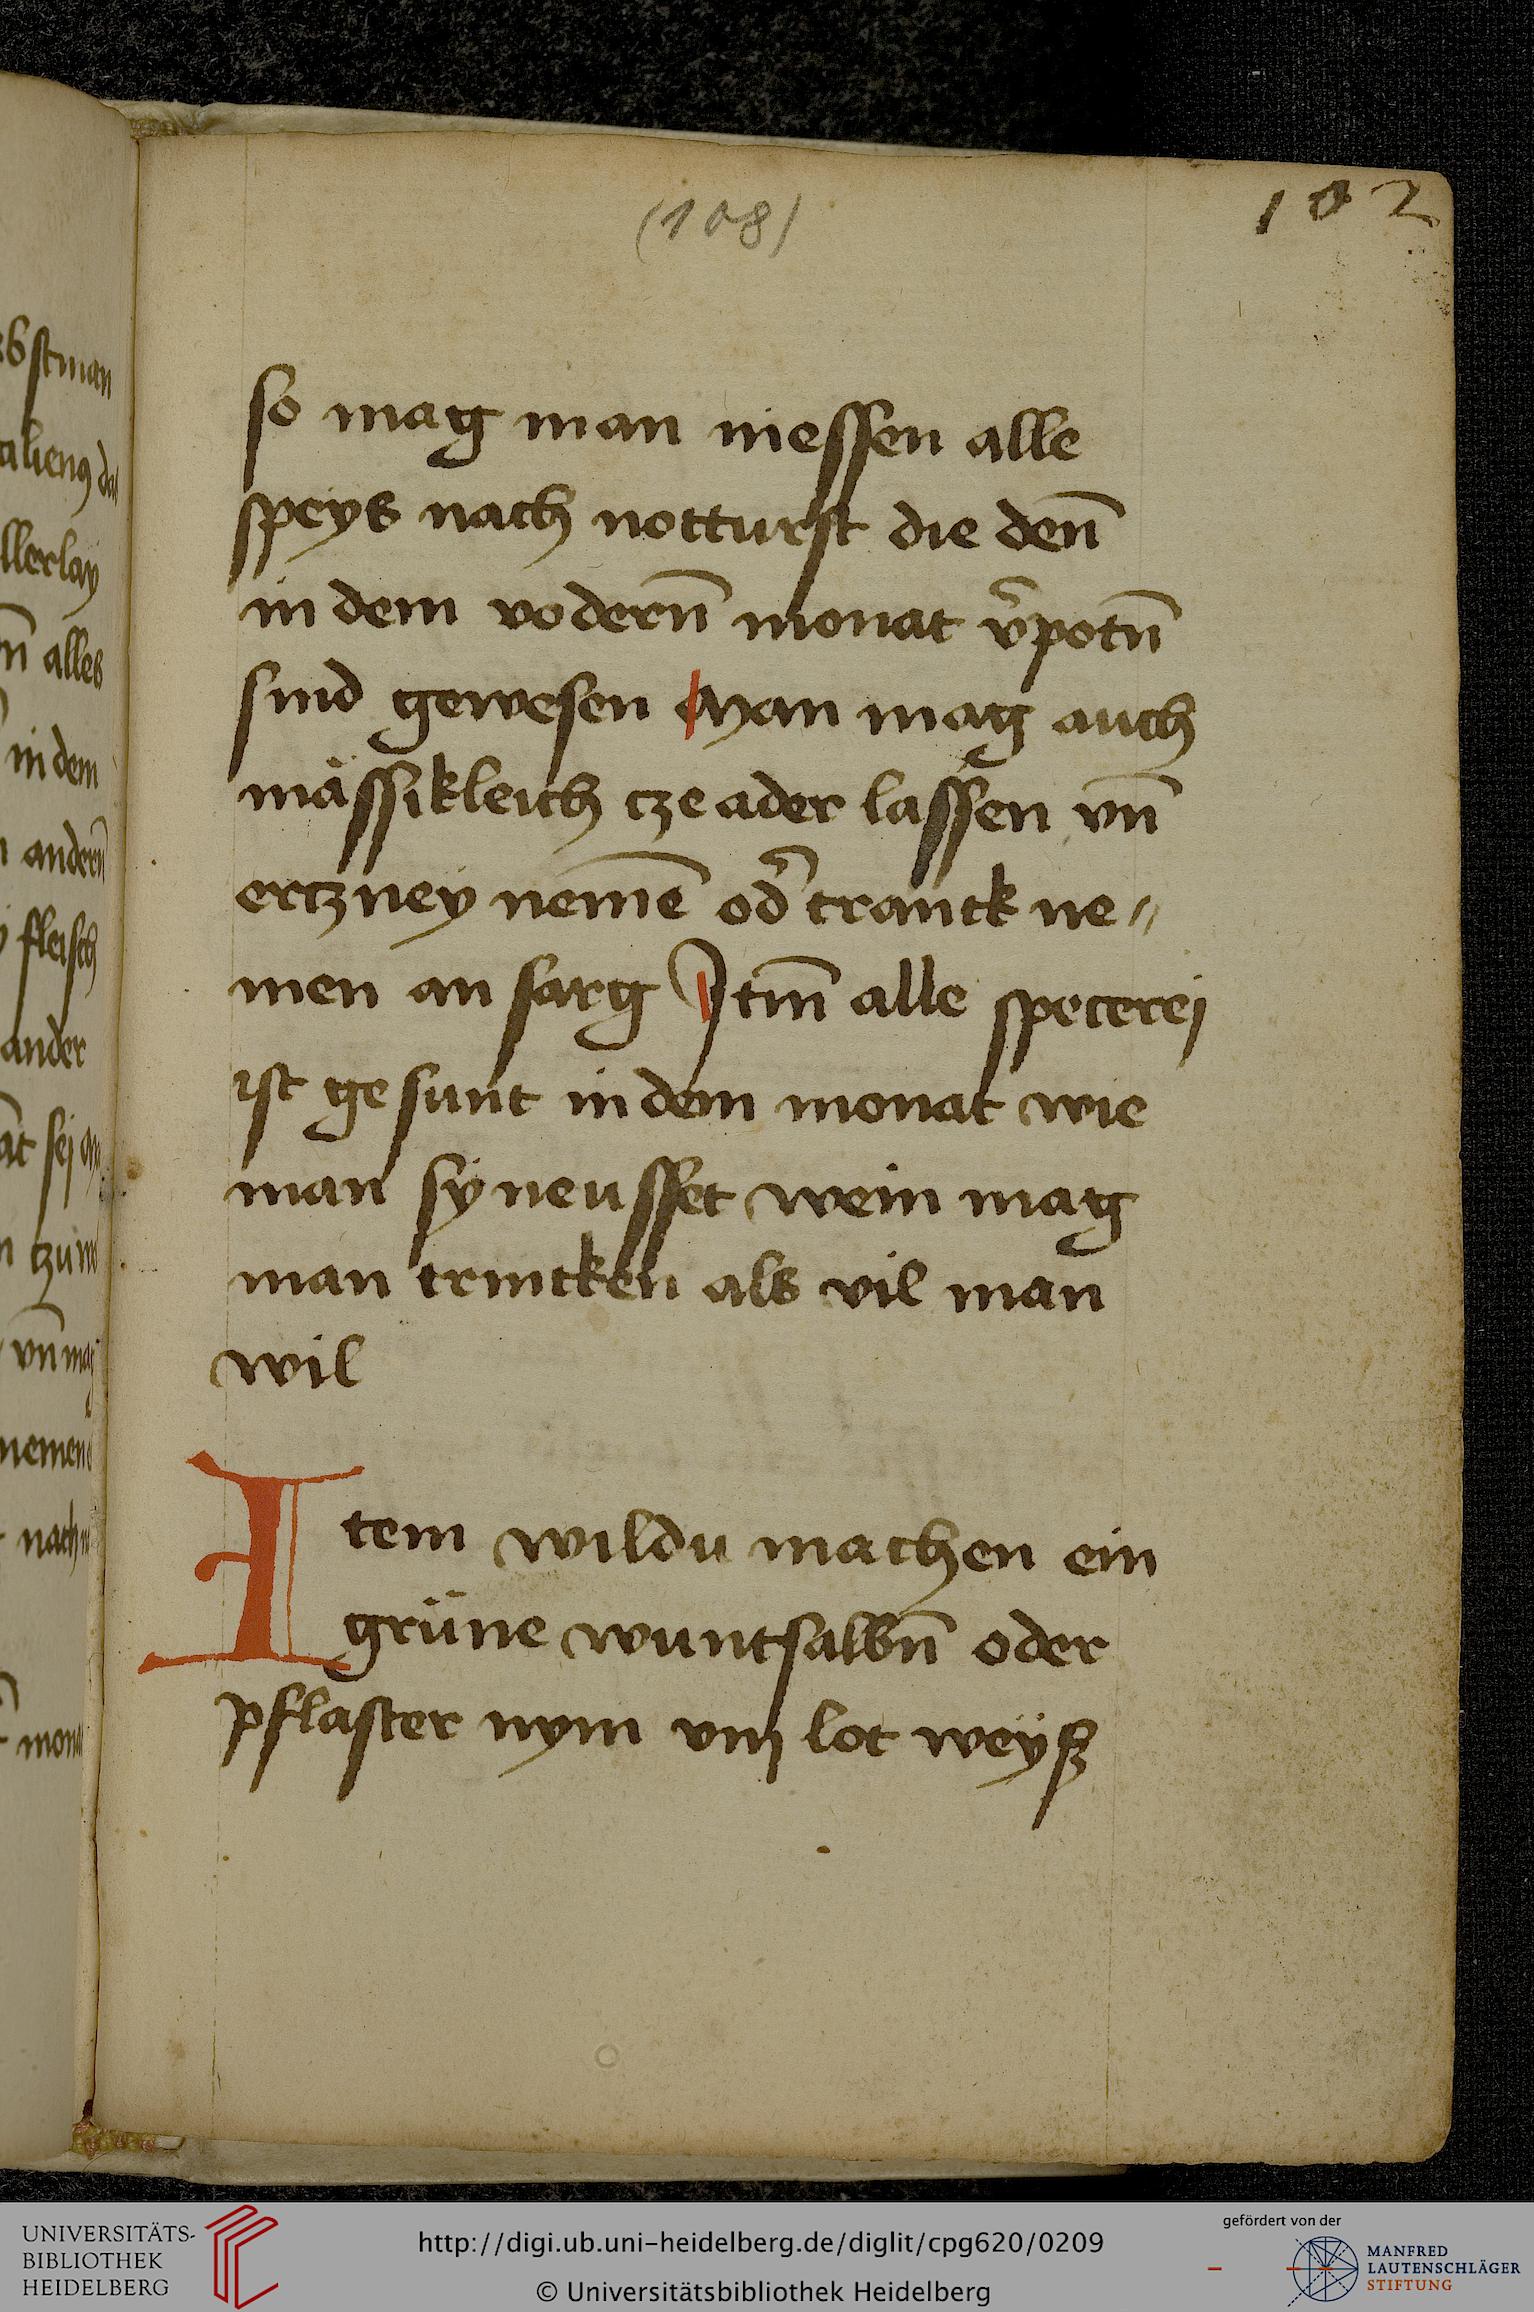 (108)
102
so mag man niessen alle
speys nach notturft die den̄
in dem vodern̄ monat v̄potn̄
sind gewesen Man mag auch
mässikleich cze ader lassen vn̄
ertzney nemē̄ od̄ tranck ne〃
men an sarg Itm̄ alle specerej
ist gesunt in dem monat wie
man sÿ neusset wein mag
man trincken als vil man
wil
Item wildu machen ein
grüne wuntsalbn̄ oder
pflaster nym viij lot weÿß
bstman
alienus das
llerlay
n̄ alles
in dem
andern̄
fleisch
ander
sej
vn̄ mag
nemen
nach
mona
UNIVERSITÄTS-
BIBLIOTHEK
HEIDELBERG
http://digi.ub.uni-heidelberg.de/diglit/cpg620/0209
© Universitätsbibliothek Heidelberg
gefördert von der
MANFRED
LAUTENSCHLÄGER
STIFTUNG